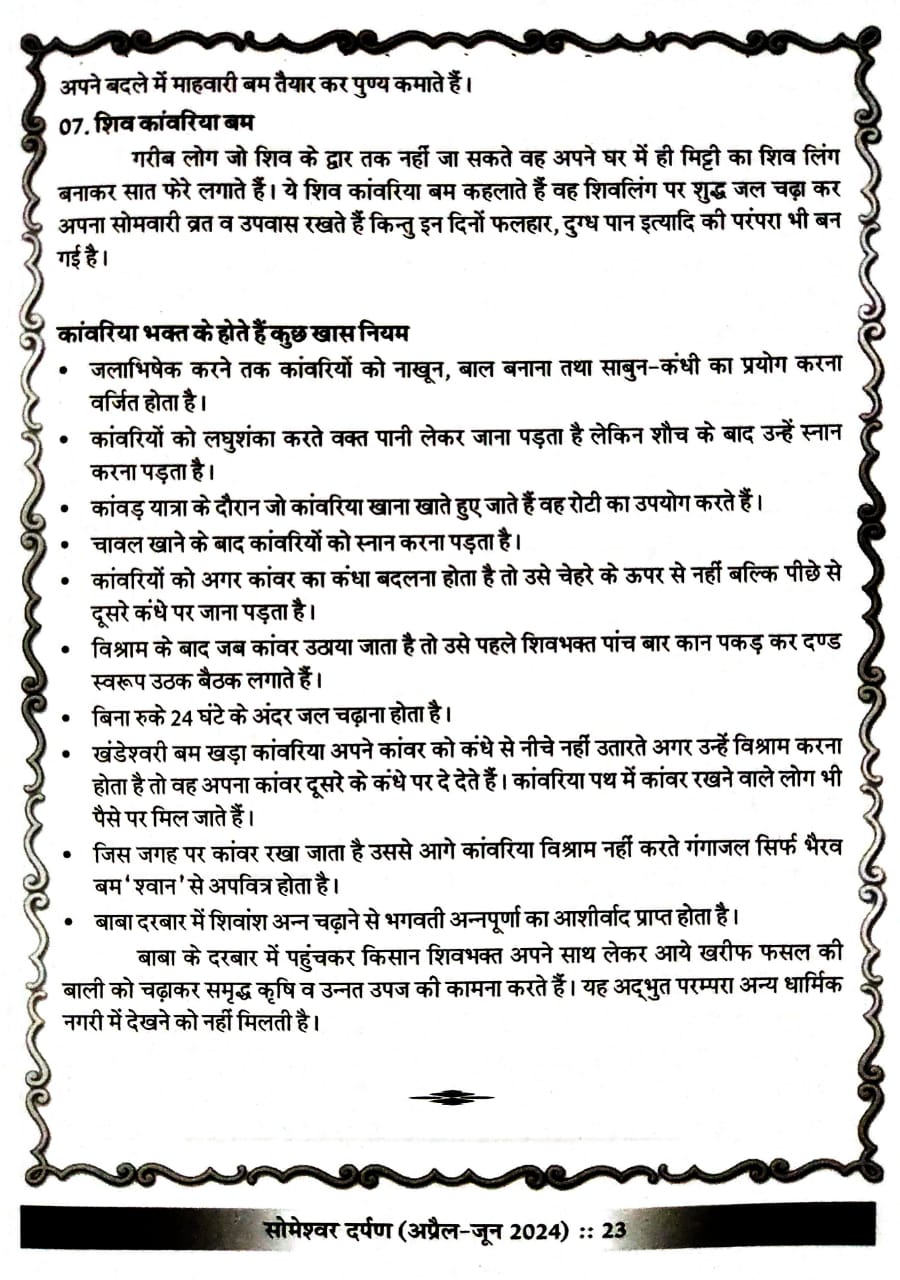 अपने बदले में माहवारी बम तैयार कर पुण्य कमाते हैं।
07. शिव कांवरिया बम
गरीब लोग जो शिव के द्वार तक नहीं जा सकते वह अपने घर में ही मिट्टी का शिव लिंग
बनाकर सात फेरे लगाते हैं। ये शिव कांवरिया बम कहलाते हैं वह शिवलिंग पर शुद्ध जल चढ़ा कर
अपना सोमवारी व्रत व उपवास रखते हैं किन्तु इन दिनों फलहार, दुग्ध पान इत्यादि की परंपरा भी बन
गई है।
कांवरिया भक्त के होते हैं कुछ खास नियम
• जलाभिषेक करने तक कांवरियों को नाखून, बाल बनाना तथा साबुन-कंधी का प्रयोग करना
वर्जित होता है।
• कांवरियों को लघुशंका करते वक्त पानी लेकर जाना पड़ता है लेकिन शौच के बाद उन्हें स्नान
करना पड़ता है।
• कांवड़ यात्रा के दौरान जो कांवरिया खाना खाते हुए जाते हैं वह रोटी का उपयोग करते हैं।
• चावल खाने के बाद कांवरियों को स्नान करना पड़ता है।
• कांवरियों को अगर कांवर का कंधा बदलना होता है तो उसे चेहरे के ऊपर से नहीं बल्कि पीछे से
दूसरे कंधे पर जाना पड़ता है।
• विश्राम के बाद जब कांवर उठाया जाता है तो उसे पहले शिवभक्त पांच बार कान पकड़ कर दण्ड
स्वरूप उठक बैठक लगाते हैं।
• बिना रुके 24 घंटे के अंदर जल चढ़ाना होता है।
• खंडेश्वरी बम खड़ा कांवरिया अपने कांवर को कंधे से नीचे नहीं उतारते अगर उन्हें विश्राम करना
होता है तो वह अपना कांवर दूसरे के कंधे पर दे देते हैं। कांवरिया पथ में कांवर रखने वाले लोग भी
पैसे पर मिल जाते हैं।
• जिस जगह पर कांवर रखा जाता है उससे आगे कांवरिया विश्राम नहीं करते गंगाजल सिर्फ भैरव
बम ‘श्वान’ से अपवित्र होता है।
• बाबा दरबार में शिवांश अन्न चढ़ाने से भगवती अन्नपूर्णा का आशीर्वाद प्राप्त होता है।
बाबा के दरबार में पहुंचकर किसान शिवभक्त अपने साथ लेकर आये खरीफ फसल की
बाली को चढ़ाकर समृद्ध कृषि व उन्नत उपज की कामना करते हैं। यह अद्भुत परम्परा अन्य धार्मिक
नगरी में देखने को नहीं मिलती है।
सोमेश्वर दर्पण (अप्रैल-जून 2024) :: 23